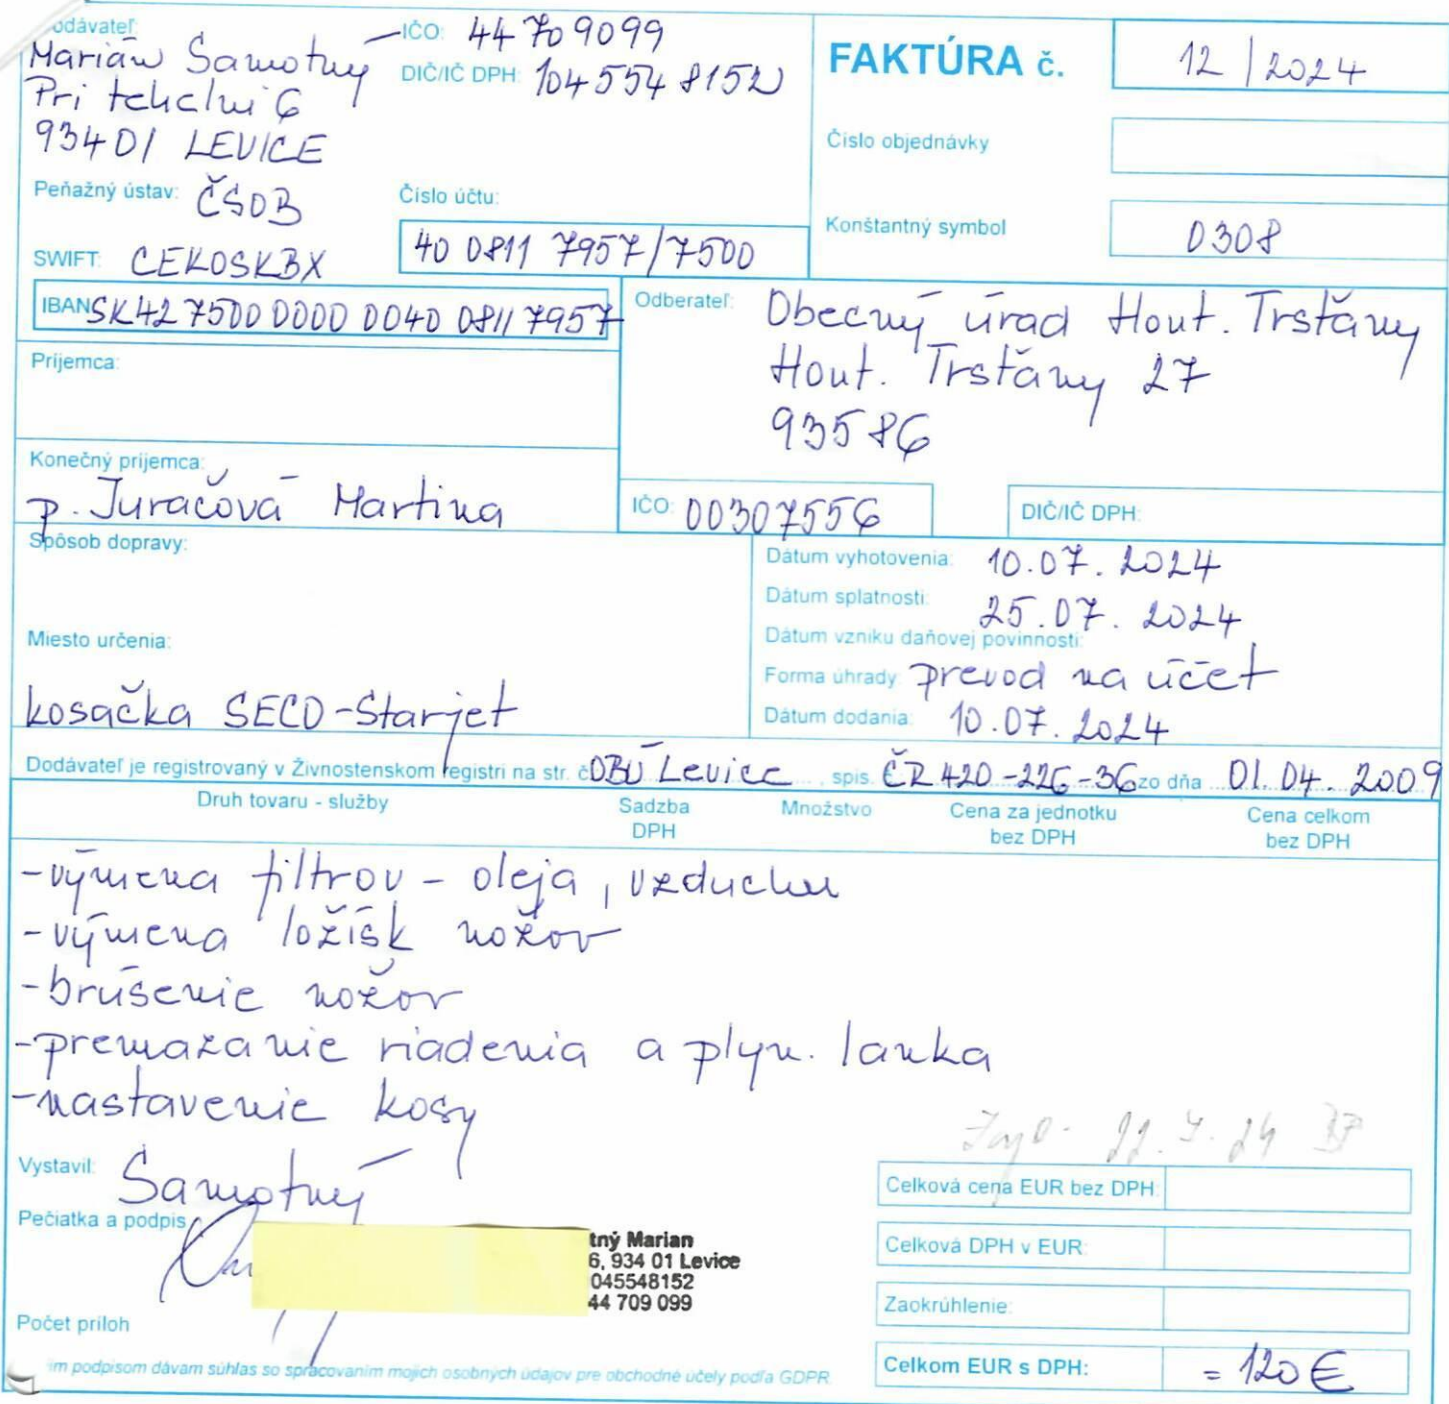 odávateľ:
IČO: 44 709099
Marián Samotný
DIČ/IČ DPH: 1045548152
Pri tehelni 6
93401 LEVICE
Peňažný ústav: ČSOB
Číslo účtu:
40 0811 7957/7500
SWIFT: CEKOSKBX
IBAN SK42 7500 0000 0040 0811 7957
FAKTÚRA č. 12/2024
Číslo objednávky
Konštantný symbol 0308
Príjemca:
Odberateľ: Obecný úrad Hont. Trsťany
Hont. Trsťany 27
93586
Konečný príjemca:
p. Juračová Martina
IČO: 00307556
DIČ/IČ DPH:
Spôsob dopravy:
Miesto určenia:
kosačka SECO-Starjet
Dátum vyhotovenia: 10.07.2024
Dátum splatnosti: 25.07.2024
Dátum vzniku daňovej povinnosti:
Forma úhrady: prevod na účet
Dátum dodania: 10.07.2024
Dodávateľ je registrovaný v Živnostenskom registri na str. č. OBÚ Levice, spis. ČR 420-226-36 zo dňa 01.04.2009
Druh tovaru - služby Sadzba DPH Množstvo Cena za jednotku bez DPH Cena celkom bez DPH
-výmena filtrov - oleja, vzduchu
-výmena ložísk nožov
-brúsenie nožov
-premazanie riadenia a plyn. lanka
-nastavenie kosy
22.7.24
Vystavil: Samotný
Pečiatka a podpis
tný Marian
6, 934 01 Levice
045548152
44 709 099
Počet príloh
ím podpisom dávam súhlas so spracovaním mojich osobných údajov pre obchodné účely podľa GDPR
Celková cena EUR bez DPH:
Celková DPH v EUR:
Zaokrúhlenie:
Celkom EUR s DPH: = 120 €